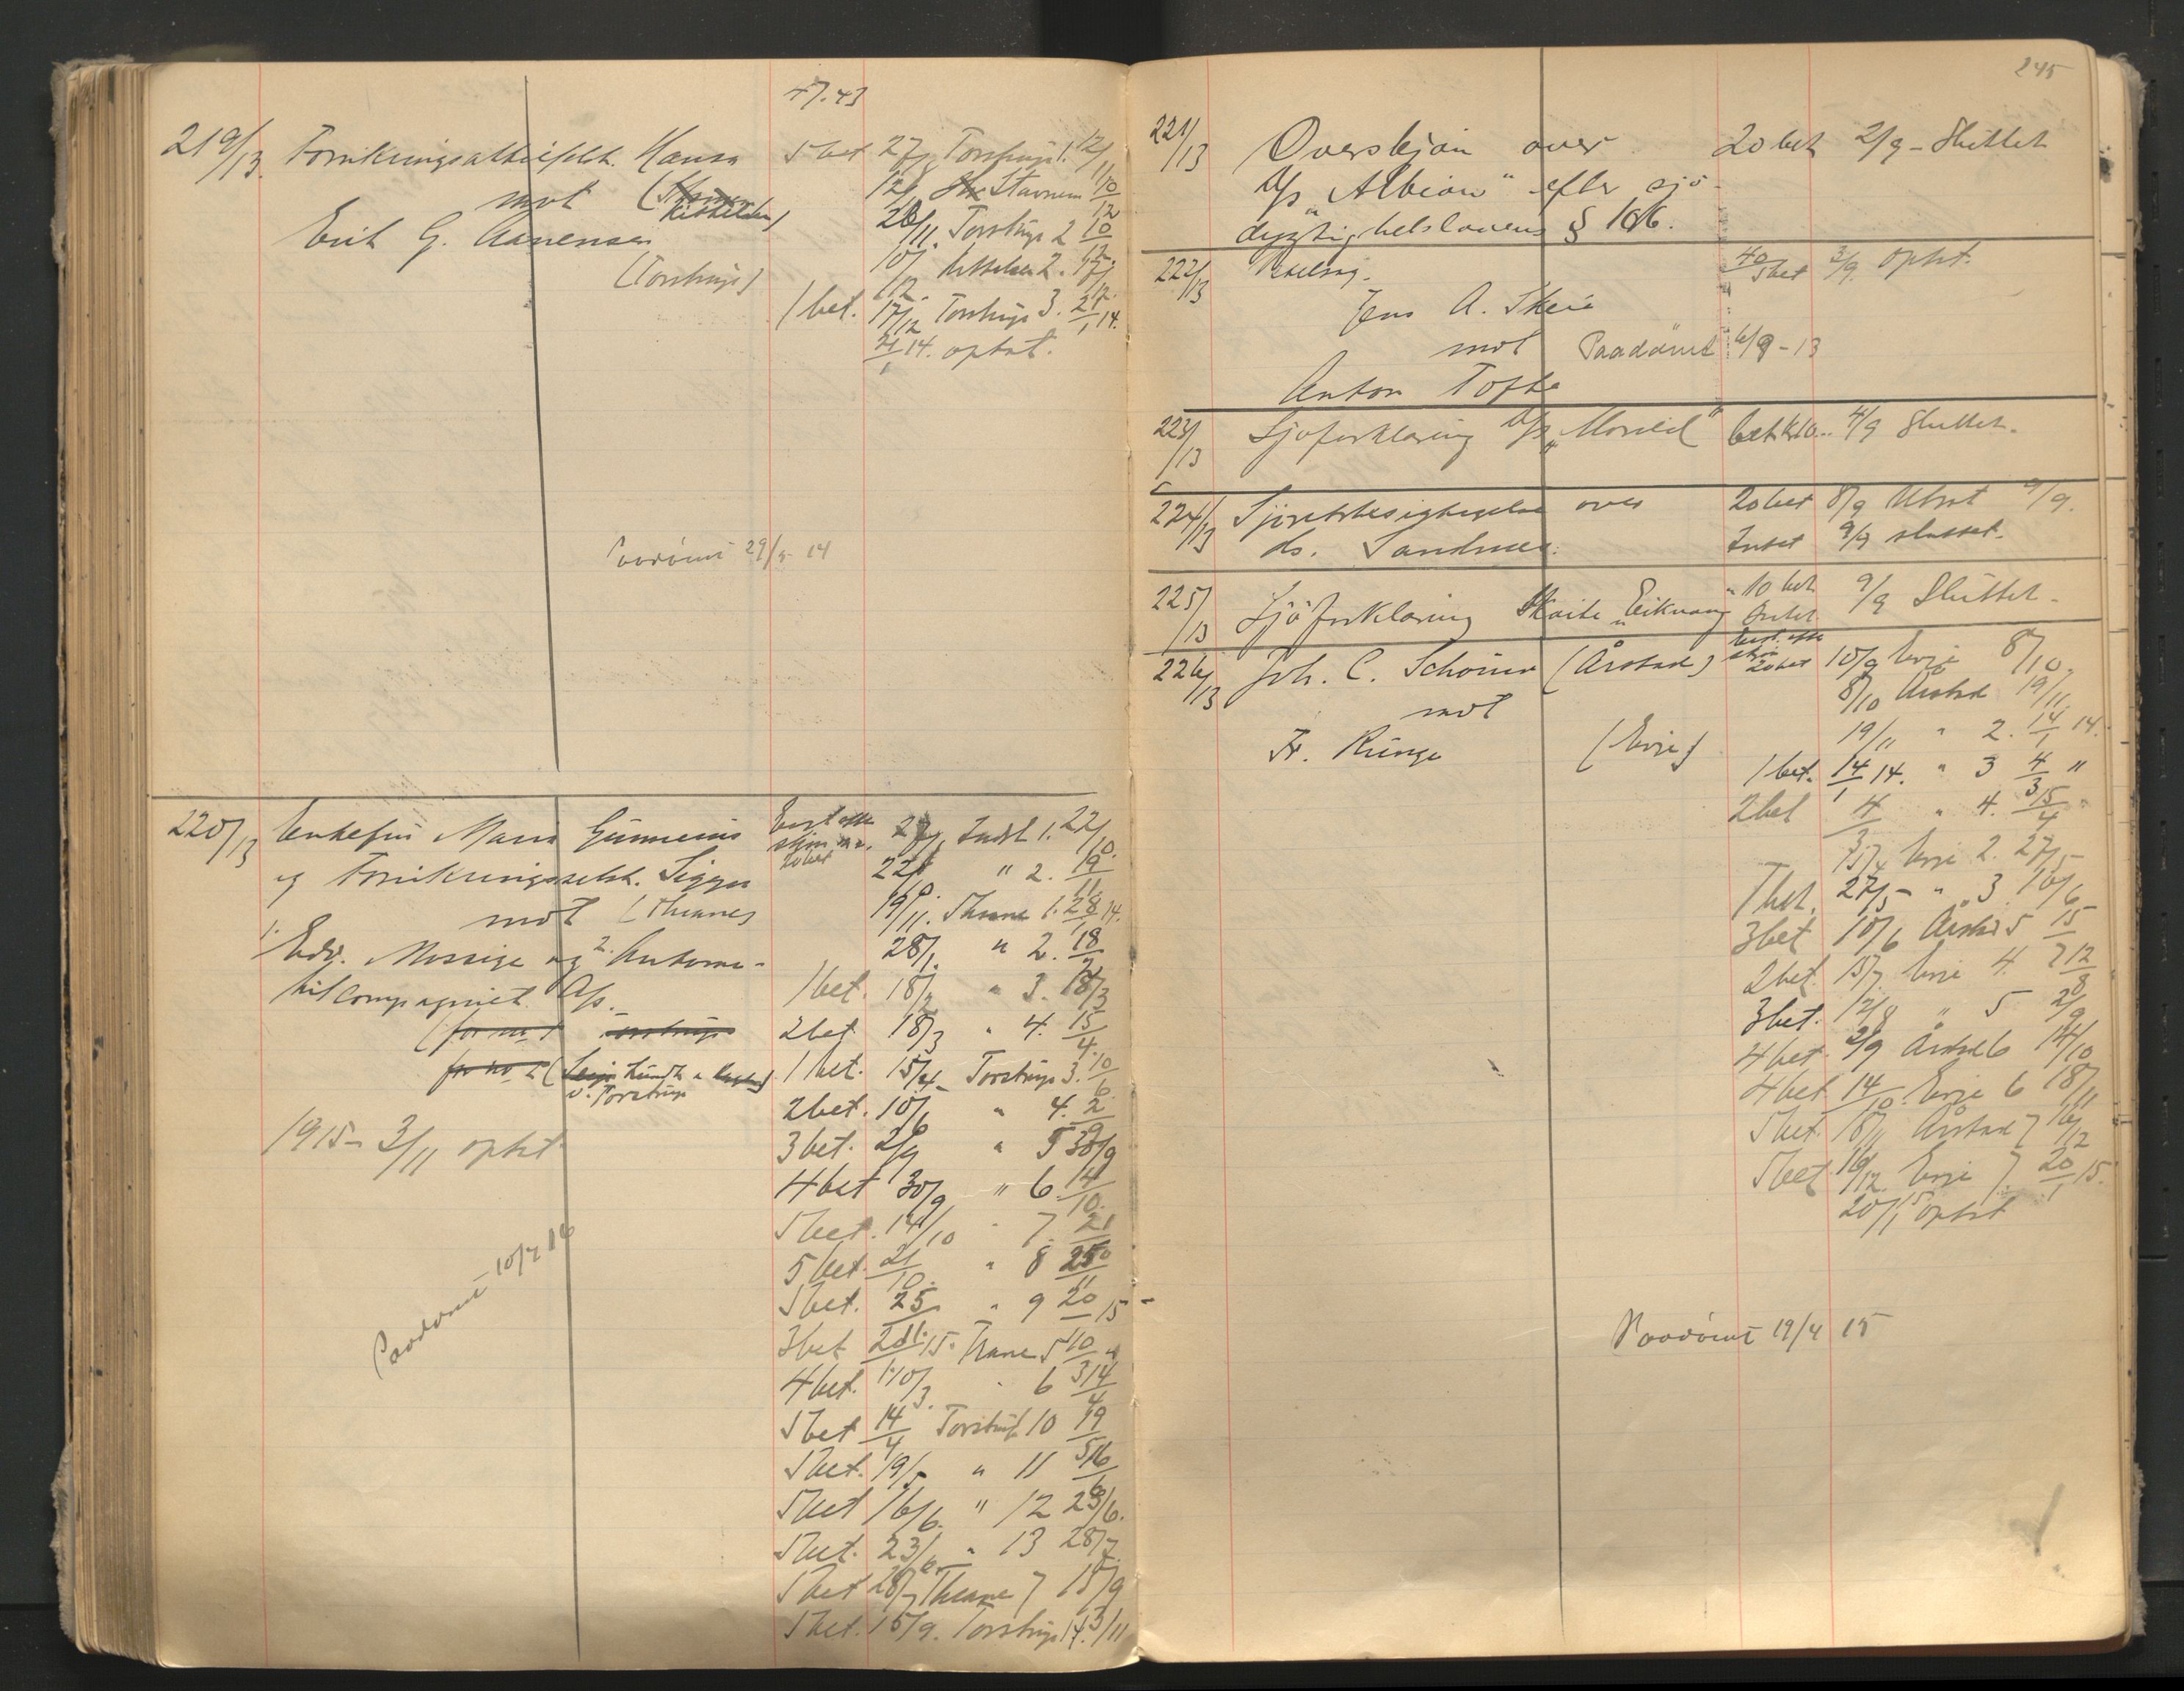 47.43
219/13. Forsikringsaktieselsk. Hansa 5 bet 27/9 Torstrup 1. 12/11
mot (Kittelsen) 12/11 Stavnem 10/12
Erik G. Aanensen 26/11. Torstrup 2 10/12
(Torstrup) 10/12. Kittelsen 2. 17/12.
1 bet. 17/12 Torstrup 3. 21/1 14.
21/1 14. optat.
Paadömt 29/5- 14
220/13 Enkefru Maria Gunnerius 20 bet 27/9 Lundh 1. 22/10.
og Forsikringsselsk. Sigyn 22/10 " 2. 19/11
mot (Theanes 19/11. Theane 1. 28/1 14.
1. Edv. Mossige og 2. Automo- 28/1. " 2. 18/2
bilcompagniet A/s. 1 bet. 18/2 " 3. 18/3
(for no 1 Torstrup 2 bet 18/3 " 4. 15/4.
for no 2 (Lundh v. Torstrup 1 bet. 15/4- Torstrup 3. 10/6.
2 bet. 10/6 " 4. 2/9
1915- 3/11 optat 3 bet. 2/9 " 5 30/9
4 bet 30/9 " 6. 14/10.
5 bet. 14/10 " 7. 21/10
5 bet. 21/10. " 8 25/11
5 bet. 25/11 " 9 20/1 15-
Paadömt 10/7 16
3 bet 20/1. 15. Theane 5 10/3 "
4 bet. 10/3. " 6 14/4
5 bet 14/4 Torstrup 10 19/5
5 bet. 19/5- " 11 16/6
5 bet 16/6. " 12 23/6.
5 bet. 23/6 " 13 28/7.
5 bet 28/7 Theane 7 15/9
5 bet. 15/9. Torstrup 14. 3/11
245
221/13 Overskjön over 20 bet 2/9 - Sluttet
D/s "Albion" efter sjö-
dygtighetslovens § 106.
222/13 Vexelsag. 40/5 bet 3/9. optat.
Jens A. Skeie
mot Paadömt 6/9 - 13
Anton Tofte
223/13 Sjöforklaring D/s "Morild" bet. k 10.. 4/9 Sluttet.
224/13 Sjöretsbesigtigelse over 20 bet 8/9 Utsat 9/9.
ds. Sandnes. Intet 9/9 sluttet.
225/13 Sjöforklaring Skøite "Eikvang" 10 bet 9/9 Sluttet.
Intet
226/13 Joh. C. Schöner (Årstad) 20 bet 10/9 Evje 8/10.
mot 8/10 Årstad 19/11.
Fr. Runge (Evje) 19/11 " 2. 14/1 14.
1 bet. 14/1 14. " 3 4/3 "
2 bet 4/3 " 4. 15/4 "
15/4 Evje 2. 27/5-
1 bet. 27/5- " 3. 10/6
3 bet 10/6 Årstad 5 15/7
2 bet. 15/7. Evje 4. 12/8
3 bet. 12/8 " 5 2/9
4 bet. 2/9 Årstad 6 14/10
4 bet 14/10. Evje 6 18/11
5 bet. 18/11 Årstad 7 16/12
5 bet 16/12. Evje 7. 20/1 15.
20/1 15. optat
Paadömt 19/4 15